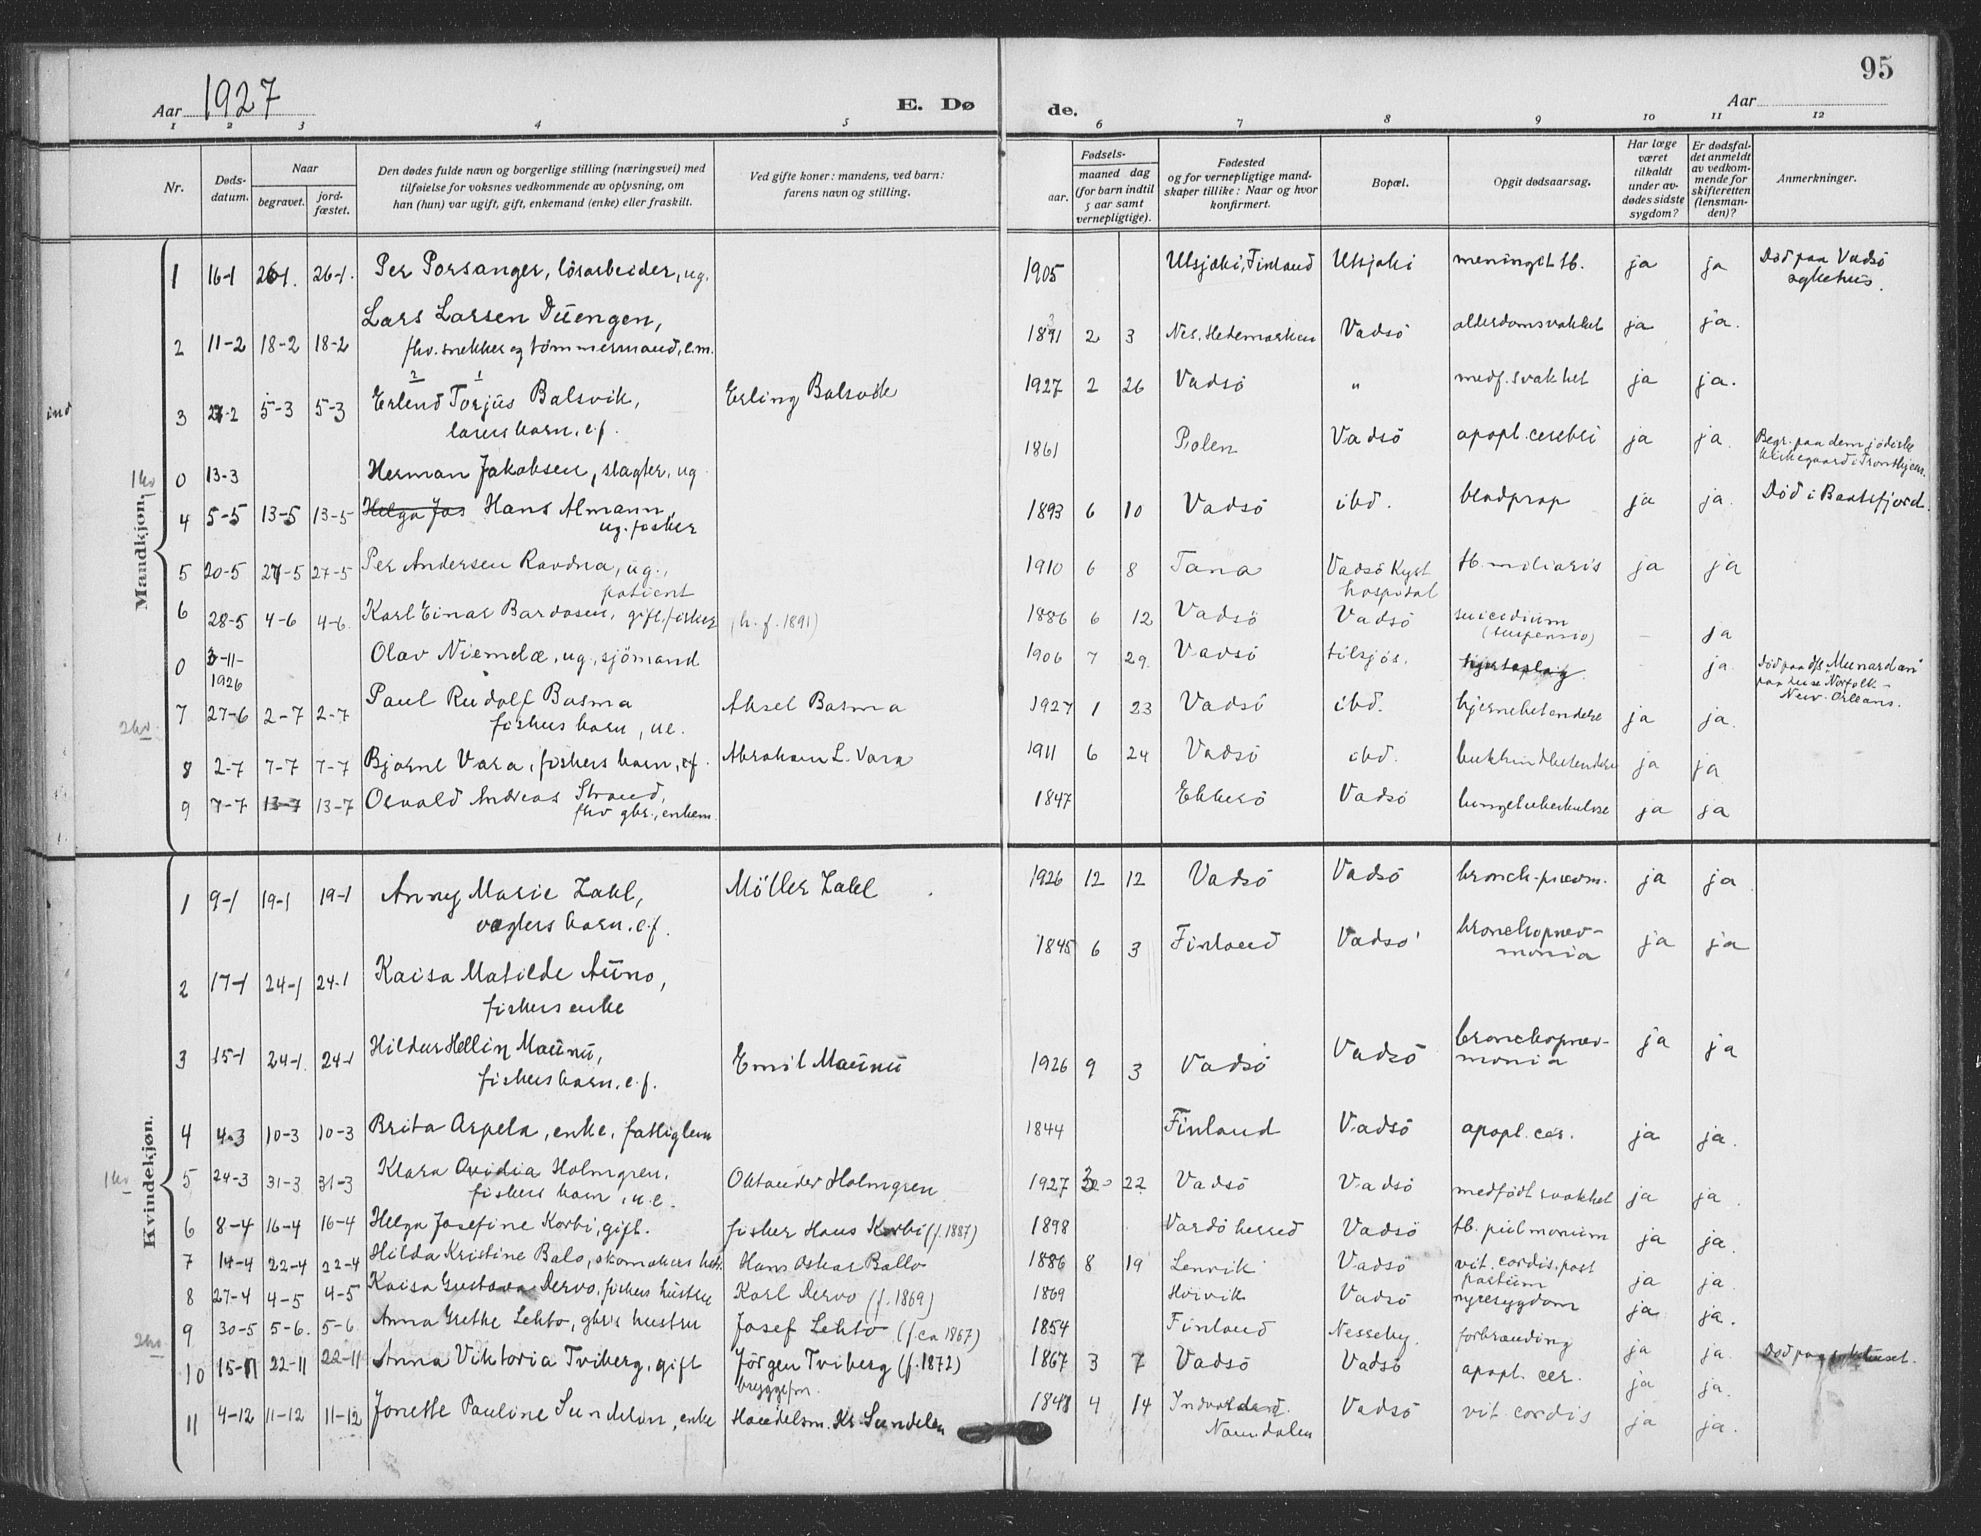 95
Aar 1927
E. Dø
de.
Aar
1 2 3 4 5 6 7 8 9 10 11 12
Nr.
Døds-
datum.
Naar
begravet.
jord-
fæstet.
Den dødes fulde navn og borgerlige stilling (næringsvei) med
tilføielse for voksnes vedkommende av oplysning, om
han (hun) var ugift, gift, enkemand (enke) eller fraskilt.
Ved gifte koner: mandens, ved barn:
farens navn og stilling.
Fødsels-
aar.
maaned dag
(for barn indtil
5 aar samt
vernepligtige).
Fødested
og for vernepligtige mand-
skaper tillike: Naar og hvor
konfirmert.
Bopæl.
Opgit dødsaarsag.
Har læge
været
tilkaldt
under av-
dødes sidste
sygdom?
Er dødsfal-
det anmeldt
av vedkom-
mende for
skifteretten
(lensman-
den)?
Anmerkninger.
Mandkjøn.
1 16-1 26-1. 26-1. Per Porsanger, lösarbeider, ug. 1905 Utsjoki, Finland Utsjoki meningit tb. ja ja Död paa Vadsö
sykehus.
2 11-2 18-2 18-2 Lars Larsen Düengen,
fhv. snekker og tömmermand, e.m. 1891 2 3 Nes, Hedemarken Vadsö alderdomsvakhet ja ja.
3 5-3 5-3 Erlend Torjüs Balsvik, Erling Balsvik 1927 2 26 Vadsö " medf. svakhet ja ja.
barn, e.f.
0 13-3 Herman Jakobsen, slagter, ug. 1861 Polen Vadsö apopl. cerebri ja ja. Begr. paa den jödiske
kirkegaard i Trondhjem.
4 5-5 13-5 13-5 Helga Jos Hans Almann,
ug. fisker 1893 6 10 Vadsö ibd. blodprop ja ja. Död i Baatsfjord.
5 20-5 27-5 27-5 Per Andersen Ravdna, ug.,
patient 1910 6 8 Tana Vadsö Kyst
hospital tb. miliaris ja ja
6 28-5 4-6 4-6 Karl Einar Bardosen, gift, fisker (h. f. 1891) 1886 6 12 Vadsö Vadsö suicidium
(suspensio) - ja
0 3-11-
1926 Olav Niemelæ, ug., sjömand 1906 7 29. Vadsö tilsjös. hjerteslag. ja. Död paa d/s
paa reise Norfolk -
New-Orleans.
7 27-6 2-7 2-7 Paul Rudolf Basma Aksel Basma 1927 1 23 Vadsö ibd. hjernebetendelse ja ja.
fiskers barn, ue.
8 2-7 7-7 7-7 Bjarne Vara, fiskers barn, ef. Abraham L. Vara 1911 6 24 Vadsö ibd. bukhindebetendelse ja ja
9 7-7 13-7 13-7 Osvald Andreas Strand,
fhv gbr., enkem. 1847 Ekkerö Vadsö lungetuberkulose ja ja
Kvindekjøn.
1 9-1 19-1 19-1 Anny Marie Zahl, Möller Zahl 1926 12 12 Vadsö Vadsö bronch-pnevm. ja ja
barn. e.f.
2 17-1 24-1 24-1 Kaisa Matilde Auno,
fiskers enke 1845 6 3 Finland Vadsö bronchopnev-
monia ja ja
3 15-1 24-1. 24-1 Hildur Hellin Maunu, Emil Maunu 1926 9 3 Vadsö Vadsö bronchopnev-
monia ja ja
fiskers barn. e.f.
4 4-3 10-3 10-3 Brita Aspela, enke, fattiglem 1844 Finland Vadsö apopl. cer. ja ja.
5 24-3 31-3 31-3 Klara Ovidia Holmgren, Oktander Holmgren 1927 22 Vadsö Vadsö medfödt svakhet ja ja.
fiskers barn, u.e.
6 8-4 16-4 16-4 Helga Josefine Korbi, gift. fisker Hans Korbi (f. 1887) 1898 Vardö herred Vadsö tb. pulmonium ja ja.
7 14-4 22-4 22-4 Hilda Kristine Balo, skomakers Hans Oskar Ballo 1886 8 19 Lenvik Vadsö vit. cordis, post
partum ja ja.
8 27-4 4-5 4-5 Kaisa Gustava Dervo, fiskers hustru Karl Dervo (f. 1869) 1869 Vadsö nyresygdom ja ja.
9 30-5 5-6. 5-6 Anna Grethe Lehto, gbr's hustru Josef Lehto (f ca 1867) 1854 Finland Nesseby. forbrænding ja ja.
10 15-11 22-11 22-11 Anna Viktoria Tviberg, gift Jörgen Tviberg (f. 1872)
bryggefm. 1867 3 7 Vadsö Vadsö apopl. cer. ja ja. Död paa sykehuset.
11 4-12 11-12 11-12 Jonette Pauline Sundelin, enke Handelsm. Kr. Sundelin 1848 4 14
Namdalen Vadsö vit. cordis ja ja.